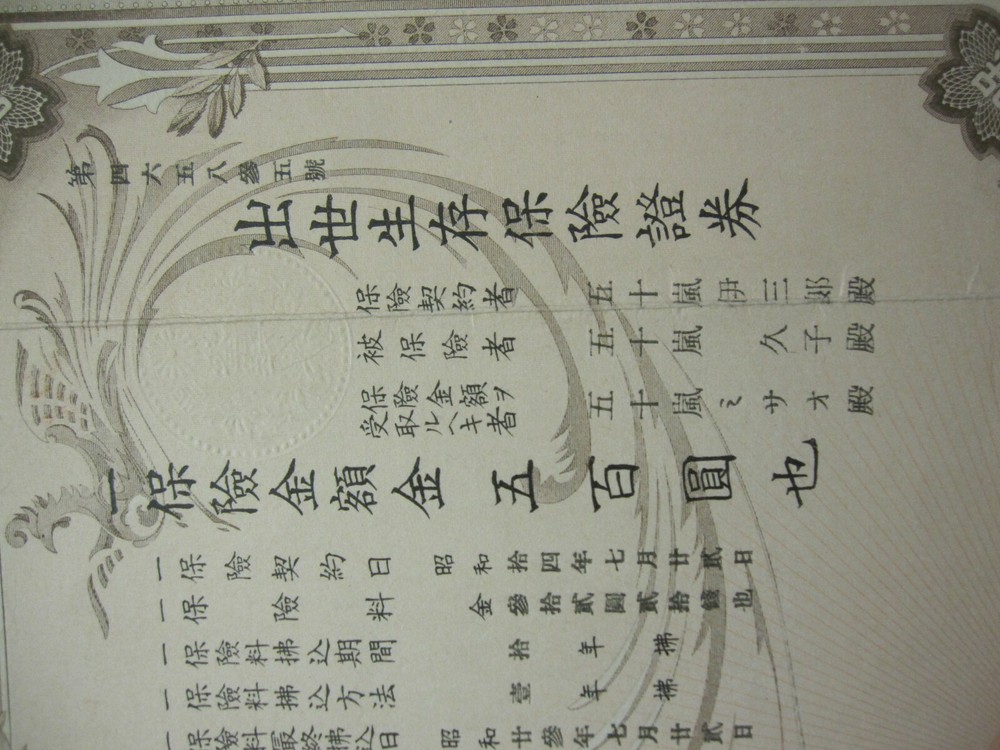 第四六五八參五號
出世生存保險證券
保險契約者 五十嵐伊三郎殿
被保險者 五十嵐久子殿
保險金額ヲ受取ルヘキ者 五十嵐ミサオ殿
一保險金額金五百圓也
一保險契約日 昭和拾四年七月廿貳日
一保險料 金參拾貳圓貳拾錢也
一保險料拂込期間 拾年拂
一保險料拂込方法 壹年拂
一保險料最終拂込日 昭和廿參年七月廿貳日